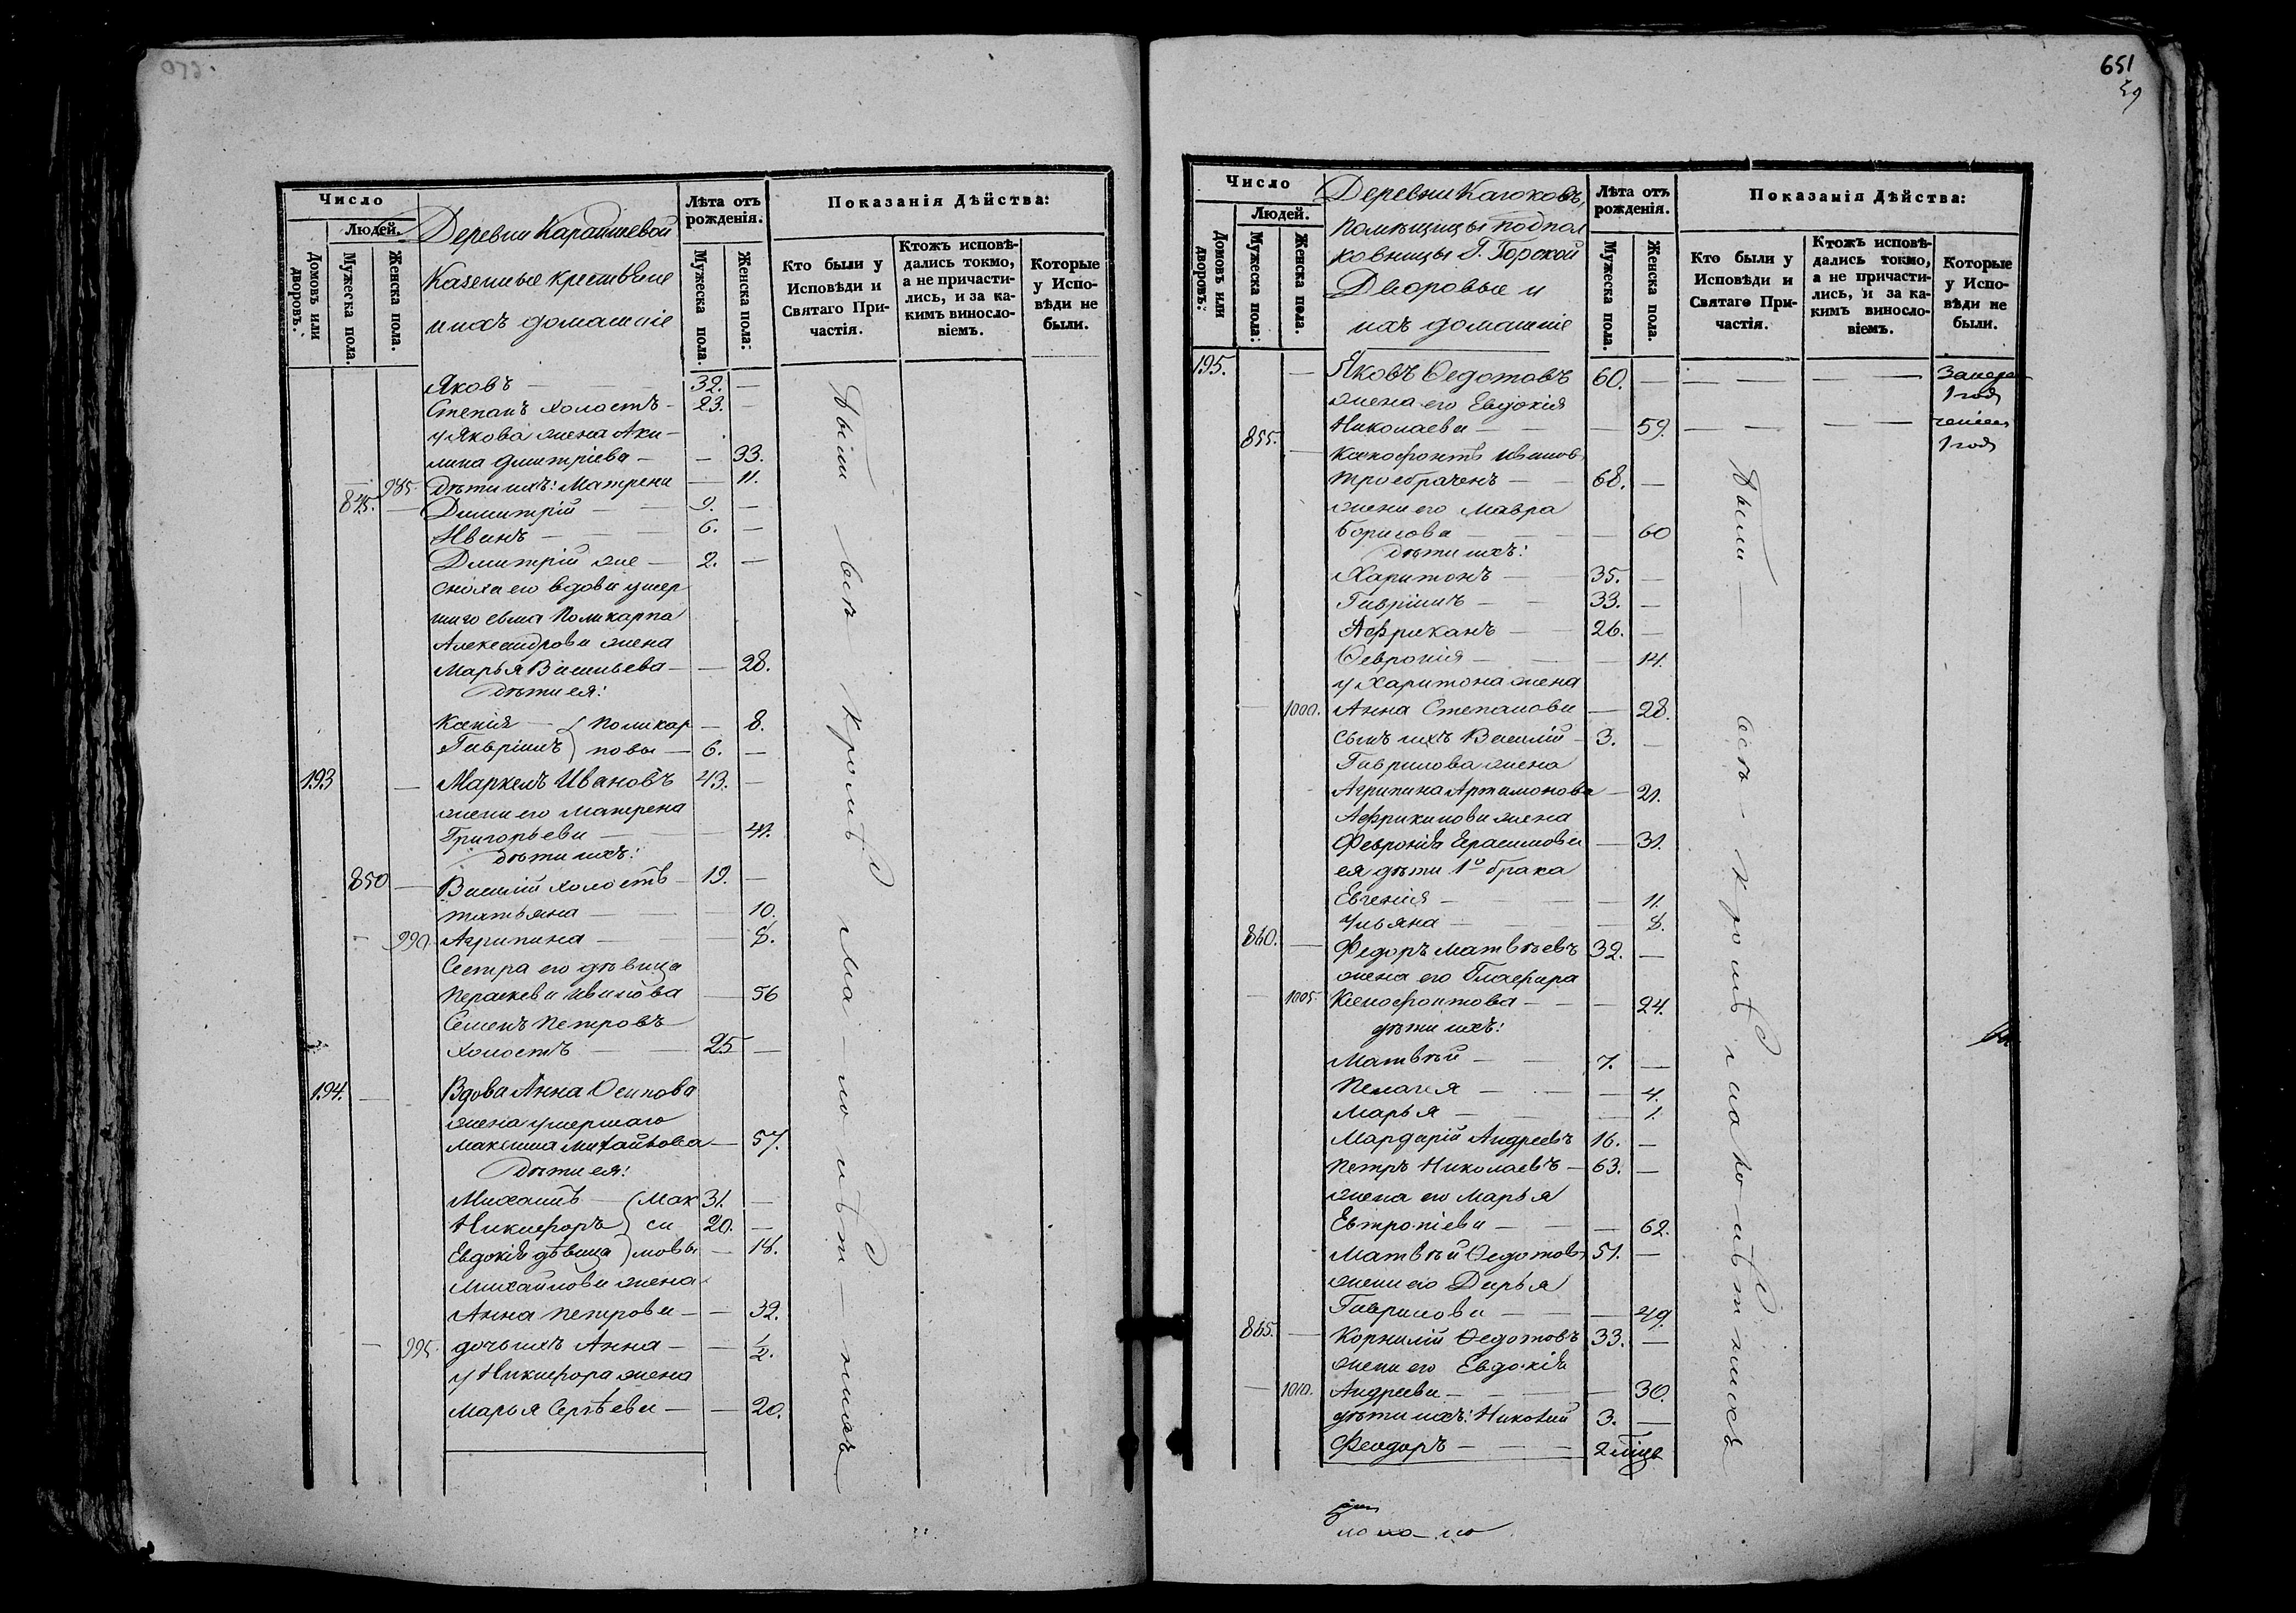 Число
Людей.
Домовъ или дворовъ.
Мужеска пола.
Женска пола.
Деревни Караишевой
Казенные крестьяне
и ихъ домашніе
Лѣта отъ рожденія.
Мужеска пола.
Женска пола:
Показанія Дѣйства:
Кто были у Исповѣди и Святаго Причастія.
Ктожъ исповѣдались токмо, а не причастились, и за какимъ винословіемъ.
Которые у Исповѣди не были.
Яковъ — 32. —
Степанъ холостъ — 23. —
у Якова жена Аки-
лина Дмитріева — — 33.
985. дѣти ихъ: Матрена — 11.
845. — Димитрій — 9. —
Иванъ — 6. —
Дмитрій же — 2. —
сноха его вдова умер
шаго сына Поликарпа
Александрова жена
Марья Васильева — — 28.
дѣти ея:
Ксенія — Поликар — 8.
Гавріилъ повы — 6. —
193 — Маркелъ Ивановъ 43. —
жена его Матрена
Григорьева — — 41.
дѣти ихъ:
850 — Василій холостъ — 19. —
Татьяна — — 10.
— 990. Агрипина — — 8.
Сестра его дѣвица
Параскева Иванова — 56
Семенъ Петровъ
холостъ — 25 —
194. — Вдова Анна Осипова
жена умершаго
Максима Михайлова — 57.
дѣти ея:
Михаилъ — Мак 31. —
Никифоръ си 20. —
Евдокія дѣвица мовы — 18.
Михайлова жена
Анна Петрова — — 32.
— 995. дочь ихъ Анна — — 1/2.
у Никифора жена
Марья Сергѣева — — 20.
были всѣ кромѣ малолѣтнихъ
651
59
Число
Людей.
Домовъ или дворовъ:
Мужеска пола:
Женска пола.
Деревни Кагоковъ,
помѣщицы подпол
ковницы Г. Горской
Дворовые и
ихъ домашніе
Лѣта отъ рожденія.
Мужеска пола.
Женска пола.
Показанія Дѣйства:
Кто были у Исповѣди и Святаго Причастія.
Ктожъ исповѣдались токмо, а не причастились, и за какимъ винословіемъ.
Которые у Исповѣди не были.
195. — Яковъ Ѳедотовъ 60. — — — — —
1 годъ
жена его Евдокія
Николаева — — 59. — — — —
1 годъ
855. — Ксенофонтъ Иванов
троебраченъ — 68. —
жена его Мавра
Борисова — — 60
дѣти ихъ:
Харитонъ — 35. —
Гавріилъ — 33. —
Африканъ — 26. —
Ѳевронія — — 14.
у Харитона жена
— 1000. Анна Степанова — 28.
сынъ ихъ Василій — 3. —
Гаврилова жена
Агрипина Артамонова — 21.
Африканова жена
Февронія Герасимова — 31.
ея дѣти 1го брака
Евгенія — — 11.
Ульяна — — 8.
860. — Федоръ Матвѣевъ 32. —
жена его Глафира
— 1005. Ксенофонтова — — 24.
дѣти ихъ:
Матвѣй — 7. —
Пелагея — — 4.
Марья — — 1.
Мардарій Андреевъ 16. —
Петръ Николаевъ — 63. —
жена его Марья
Евтропіева — — 62.
Матвѣй Ѳедотовъ 51. —
жена его Дарья
Гаврилова — — 49.
865. — Корнилій Ѳедотовъ 33. —
жена его Евдокія
— 1010. Андреева — — 30.
дѣти ихъ: Николай 3. —
Феодоръ — 2 мѣца
были — всѣ — кромѣ малолѣтнихъ